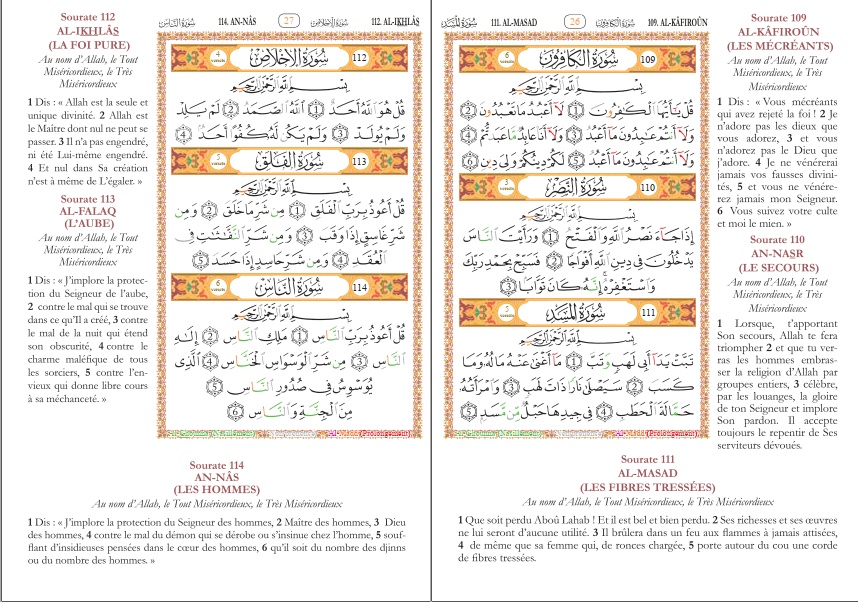 سُورَةُ النَّاسِ 114. AN-NÂS 27 سُورَةُ الإِخْلَاصِ 112. AL-IKHLÂS
Sourate 112
AL-IKHLÂS
(LA FOI PURE)
Au nom d'Allah, le Tout
Miséricordieux, le Très
Miséricordieux
1 Dis : « Allah est la seule et
unique divinité. 2 Allah est
le Maître dont nul ne peut se
passer. 3 Il n'a pas engendré,
ni été Lui-même engendré.
4 Et nul dans Sa création
n'est à même de L'égaler. »
Sourate 113
AL-FALAQ
(L'AUBE)
Au nom d'Allah, le Tout
Miséricordieux, le Très
Miséricordieux
1 Dis : « J'implore la protec-
tion du Seigneur de l'aube,
2 contre le mal qui se trouve
dans ce qu'Il a créé, 3 contre
le mal de la nuit qui étend
son obscurité, 4 contre le
charme maléfique de tous
les sorciers, 5 contre l'en-
vieux qui donne libre cours
à sa méchanceté. »
4 versets سُورَةُ الإِخْلَاصِ 112
بِسْمِ اللَّهِ الرَّحْمَٰنِ الرَّحِيمِ
قُلْ هُوَ اللَّهُ أَحَدٌ ۝١ اللَّهُ الصَّمَدُ ۝٢ لَمْ يَلِدْ
وَلَمْ يُولَدْ ۝٣ وَلَمْ يَكُن لَّهُ كُفُوًا أَحَدٌ ۝٤
5 versets سُورَةُ الفَلَقِ 113
بِسْمِ اللَّهِ الرَّحْمَٰنِ الرَّحِيمِ
قُلْ أَعُوذُ بِرَبِّ الْفَلَقِ ۝١ مِن شَرِّ مَا خَلَقَ ۝٢ وَمِن
شَرِّ غَاسِقٍ إِذَا وَقَبَ ۝٣ وَمِن شَرِّ النَّفَّاثَاتِ فِي
الْعُقَدِ ۝٤ وَمِن شَرِّ حَاسِدٍ إِذَا حَسَدَ ۝٥
6 versets سُورَةُ النَّاسِ 114
بِسْمِ اللَّهِ الرَّحْمَٰنِ الرَّحِيمِ
قُلْ أَعُوذُ بِرَبِّ النَّاسِ ۝١ مَلِكِ النَّاسِ ۝٢ إِلَٰهِ
النَّاسِ ۝٣ مِن شَرِّ الْوَسْوَاسِ الْخَنَّاسِ ۝٤ الَّذِي
يُوَسْوِسُ فِي صُدُورِ النَّاسِ ۝٥
مِنَ الْجِنَّةِ وَالنَّاسِ ۝٦
(Prolongement)
Sourate 114
AN-NÂS
(LES HOMMES)
Au nom d'Allah, le Tout Miséricordieux, le Très Miséricordieux
1 Dis : « J'implore la protection du Seigneur des hommes, 2 Maître des hommes, 3 Dieu
des hommes, 4 contre le mal du démon qui se dérobe ou s'insinue chez l'homme, 5 souf-
flant d'insidieuses pensées dans le cœur des hommes, 6 qu'il soit du nombre des djinns
ou du nombre des hommes. »
سُورَةُ المَسَدِ 111. AL-MASAD 26 سُورَةُ الكَافِرُونَ 109. AL-KÂFIROÛN
6 versets سُورَةُ الكَافِرُونَ 109
بِسْمِ اللَّهِ الرَّحْمَٰنِ الرَّحِيمِ
قُلْ يَا أَيُّهَا الْكَافِرُونَ ۝١ لَا أَعْبُدُ مَا تَعْبُدُونَ ۝٢
وَلَا أَنتُمْ عَابِدُونَ مَا أَعْبُدُ ۝٣ وَلَا أَنَا عَابِدٌ مَّا عَبَدتُّمْ ۝٤
وَلَا أَنتُمْ عَابِدُونَ مَا أَعْبُدُ ۝٥ لَكُمْ دِينُكُمْ وَلِيَ دِينِ ۝٦
3 versets سُورَةُ النَّصْرِ 110
بِسْمِ اللَّهِ الرَّحْمَٰنِ الرَّحِيمِ
إِذَا جَاءَ نَصْرُ اللَّهِ وَالْفَتْحُ ۝١ وَرَأَيْتَ النَّاسَ
يَدْخُلُونَ فِي دِينِ اللَّهِ أَفْوَاجًا ۝٢ فَسَبِّحْ بِحَمْدِ رَبِّكَ
وَاسْتَغْفِرْهُ إِنَّهُ كَانَ تَوَّابًا ۝٣
5 versets سُورَةُ المَسَدِ 111
بِسْمِ اللَّهِ الرَّحْمَٰنِ الرَّحِيمِ
تَبَّتْ يَدَا أَبِي لَهَبٍ وَتَبَّ ۝١ مَا أَغْنَىٰ عَنْهُ مَالُهُ وَمَا
كَسَبَ ۝٢ سَيَصْلَىٰ نَارًا ذَاتَ لَهَبٍ ۝٣ وَامْرَأَتُهُ
حَمَّالَةَ الْحَطَبِ ۝٤ فِي جِيدِهَا حَبْلٌ مِّن مَّسَدٍ ۝٥
(Prolongement)
Sourate 109
AL-KÂFIROÛN
(LES MÉCRÉANTS)
Au nom d'Allah, le Tout
Miséricordieux, le Très
Miséricordieux
1 Dis : « Vous mécréants
qui avez rejeté la foi ! 2 Je
n'adore pas les dieux que
vous adorez, 3 et vous
n'adorez pas le Dieu que
j'adore. 4 Je ne vénérerai
jamais vos fausses divini-
tés, 5 et vous ne vénére-
rez jamais mon Seigneur.
6 Vous suivez votre culte
et moi le mien. »
Sourate 110
AN-NASR
(LE SECOURS)
Au nom d'Allah, le Tout
Miséricordieux, le Très
Miséricordieux
1 Lorsque, t'apportant
Son secours, Allah te fera
triompher 2 et que tu ver-
ras les hommes embras-
ser la religion d'Allah par
groupes entiers, 3 célèbre,
par les louanges, la gloire
de ton Seigneur et implore
Son pardon. Il accepte
toujours le repentir de Ses
serviteurs dévoués.
Sourate 111
AL-MASAD
(LES FIBRES TRESSÉES)
Au nom d'Allah, le Tout Miséricordieux, le Très Miséricordieux
1 Que soit perdu Aboû Lahab ! Et il est bel et bien perdu. 2 Ses richesses et ses œuvres
ne lui seront d'aucune utilité. 3 Il brûlera dans un feu aux flammes à jamais attisées,
4 de même que sa femme qui, de ronces chargée, 5 porte autour du cou une corde
de fibres tressées.